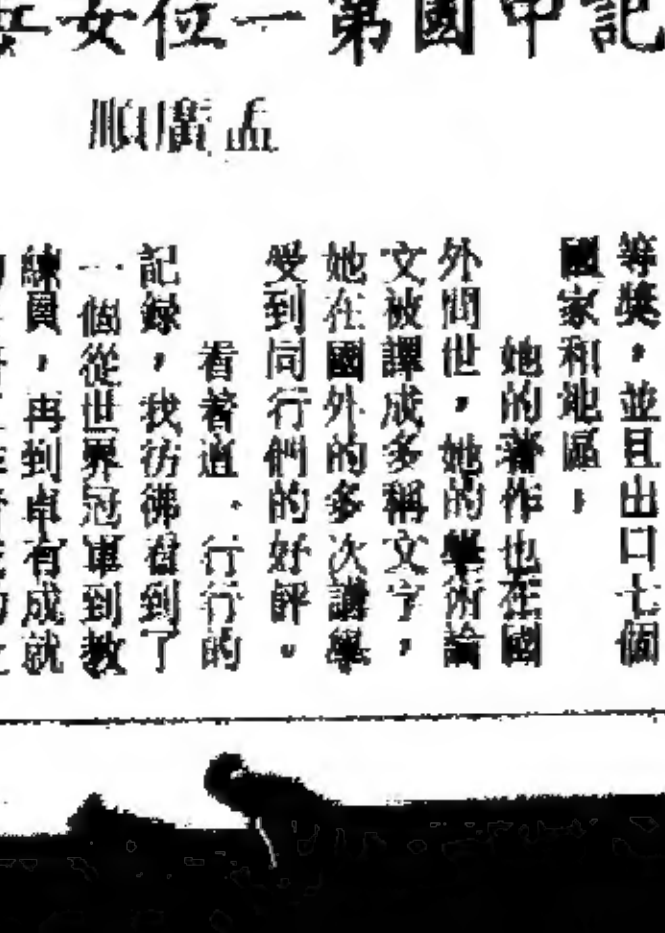 記中國第一位女
孟廣順
等獎，並且出口七個
國家和地區，
她的著作也在國
外問世，她的學術論
文被譯成多稱文字，
她在國外的多次講學
受到同行們的好評。
看著這一行行的
記録，我彷彿看到了
一個從世界冠軍到教
練員，再到卓有成就